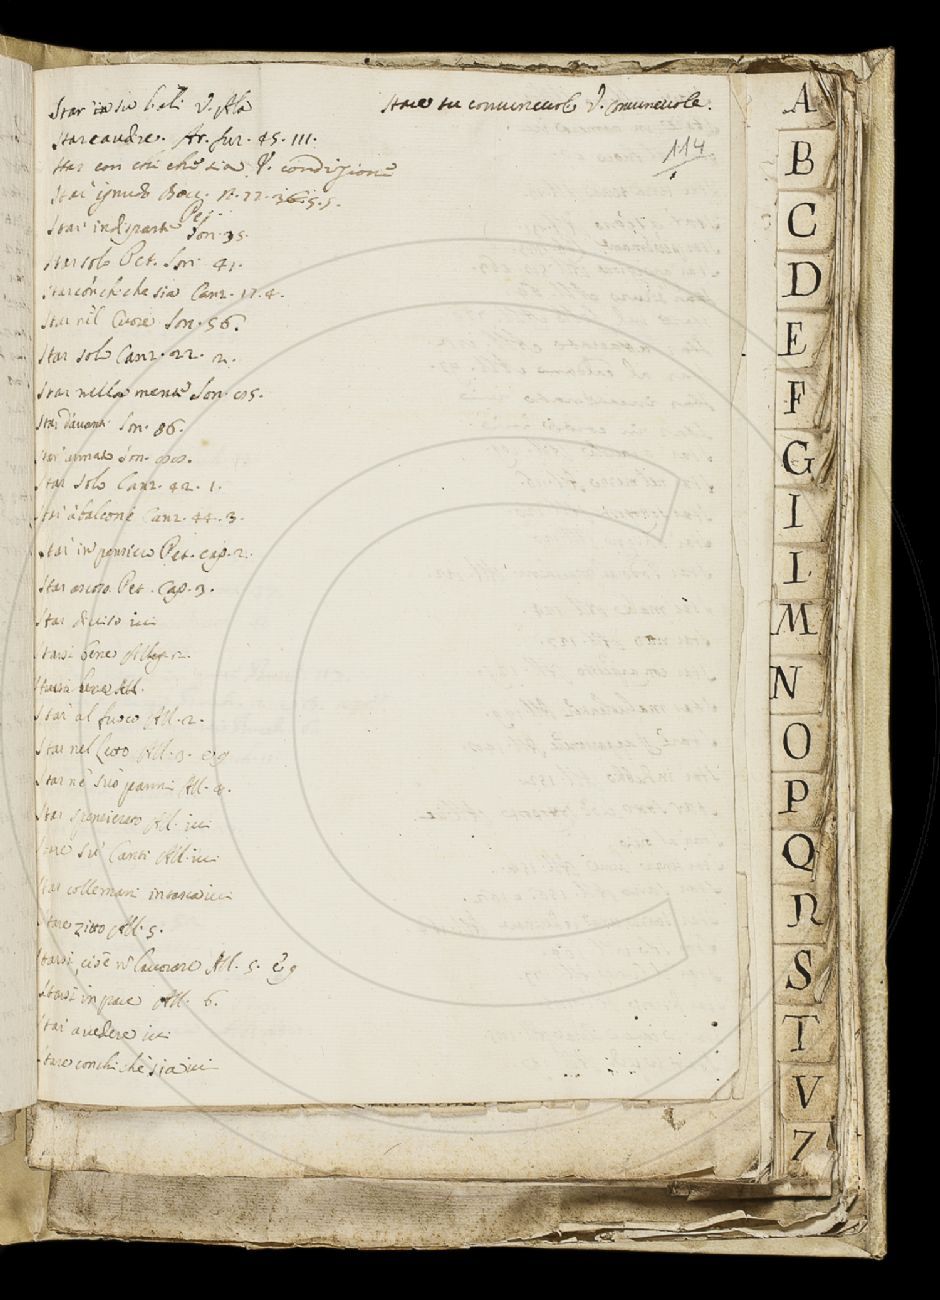 Star in su V. Ala
Stare a udire. Ar. Fur. 45. 111.
Star con chi che sia V. condizione
Star ignudo Bocc. N. 77. 36. 5. 5.
Star in disparte Pet. Son. 35.
Star solo Pet. Son. 41.
Star con chi che sia Canz. 17. 4.
Star nel Cuore Son. 56.
Star solo Canz. 22. 2.
Star nella mente Son.
Star davanti Son. 86.
Star armato Son.
Star solo Canz. 42. 1.
Star a balcone Canz. 44. 3.
Star in pensiero Pet. Cap. 2.
Star ascoso Pet. Cap. 3.
Star diviso ivi
Starsi bene All. 2.
Starsi bene All.
Star al fuoco All. 2.
Star nel Letto All. 3. e 9
Star ne' suo panni All. 4.
Star ivi
Stare su' Canti All. ivi
Star colle mani in tasca ivi
Stare zitto All. 5.
Starsi, cioè non lavorare All. 5. e 9
Starsi in pace All. 6.
Star a vedere ivi
Stare con chi che sia ivi
Stare sul convenevole V. convenevole.
114
A
B
C
D
E
F
G
I
L
M
N
O
P
Q
R
S
T
V
Z